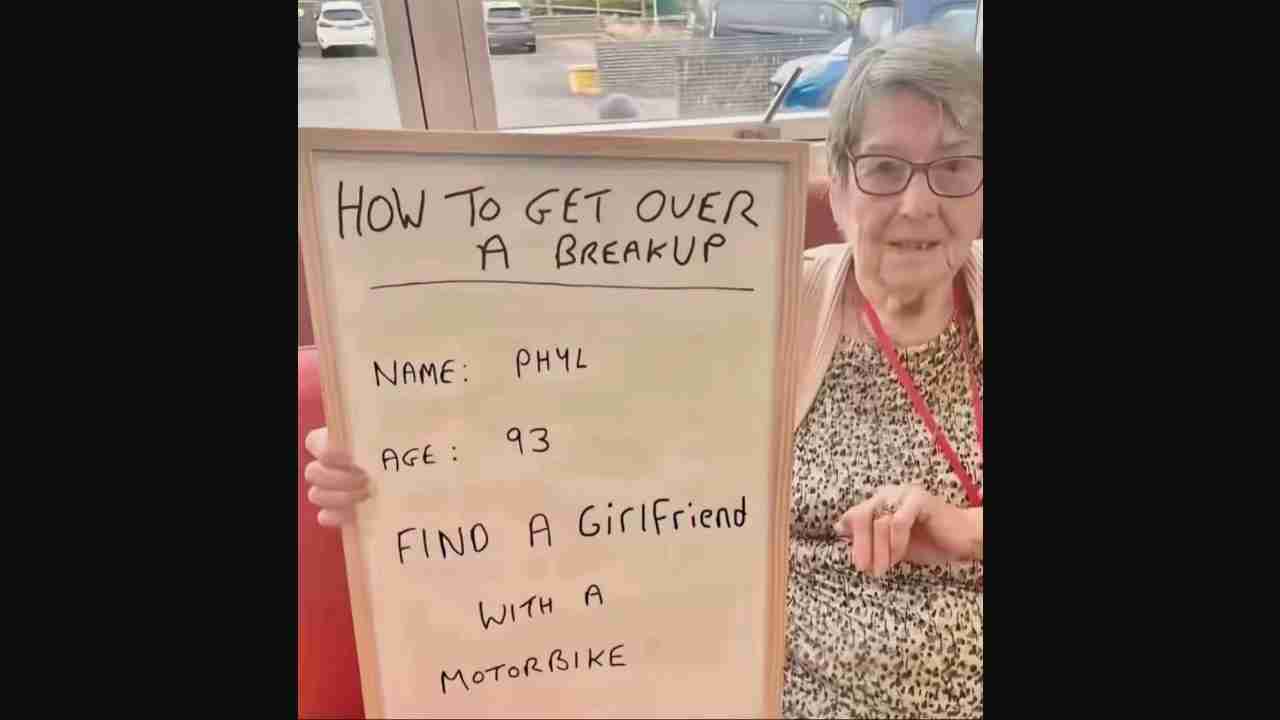 HOW TO GET OVER
A BREAKUP
NAME: PHYL
AGE: 93
FIND A GirlFriend
WITH A
MOTORBIKE